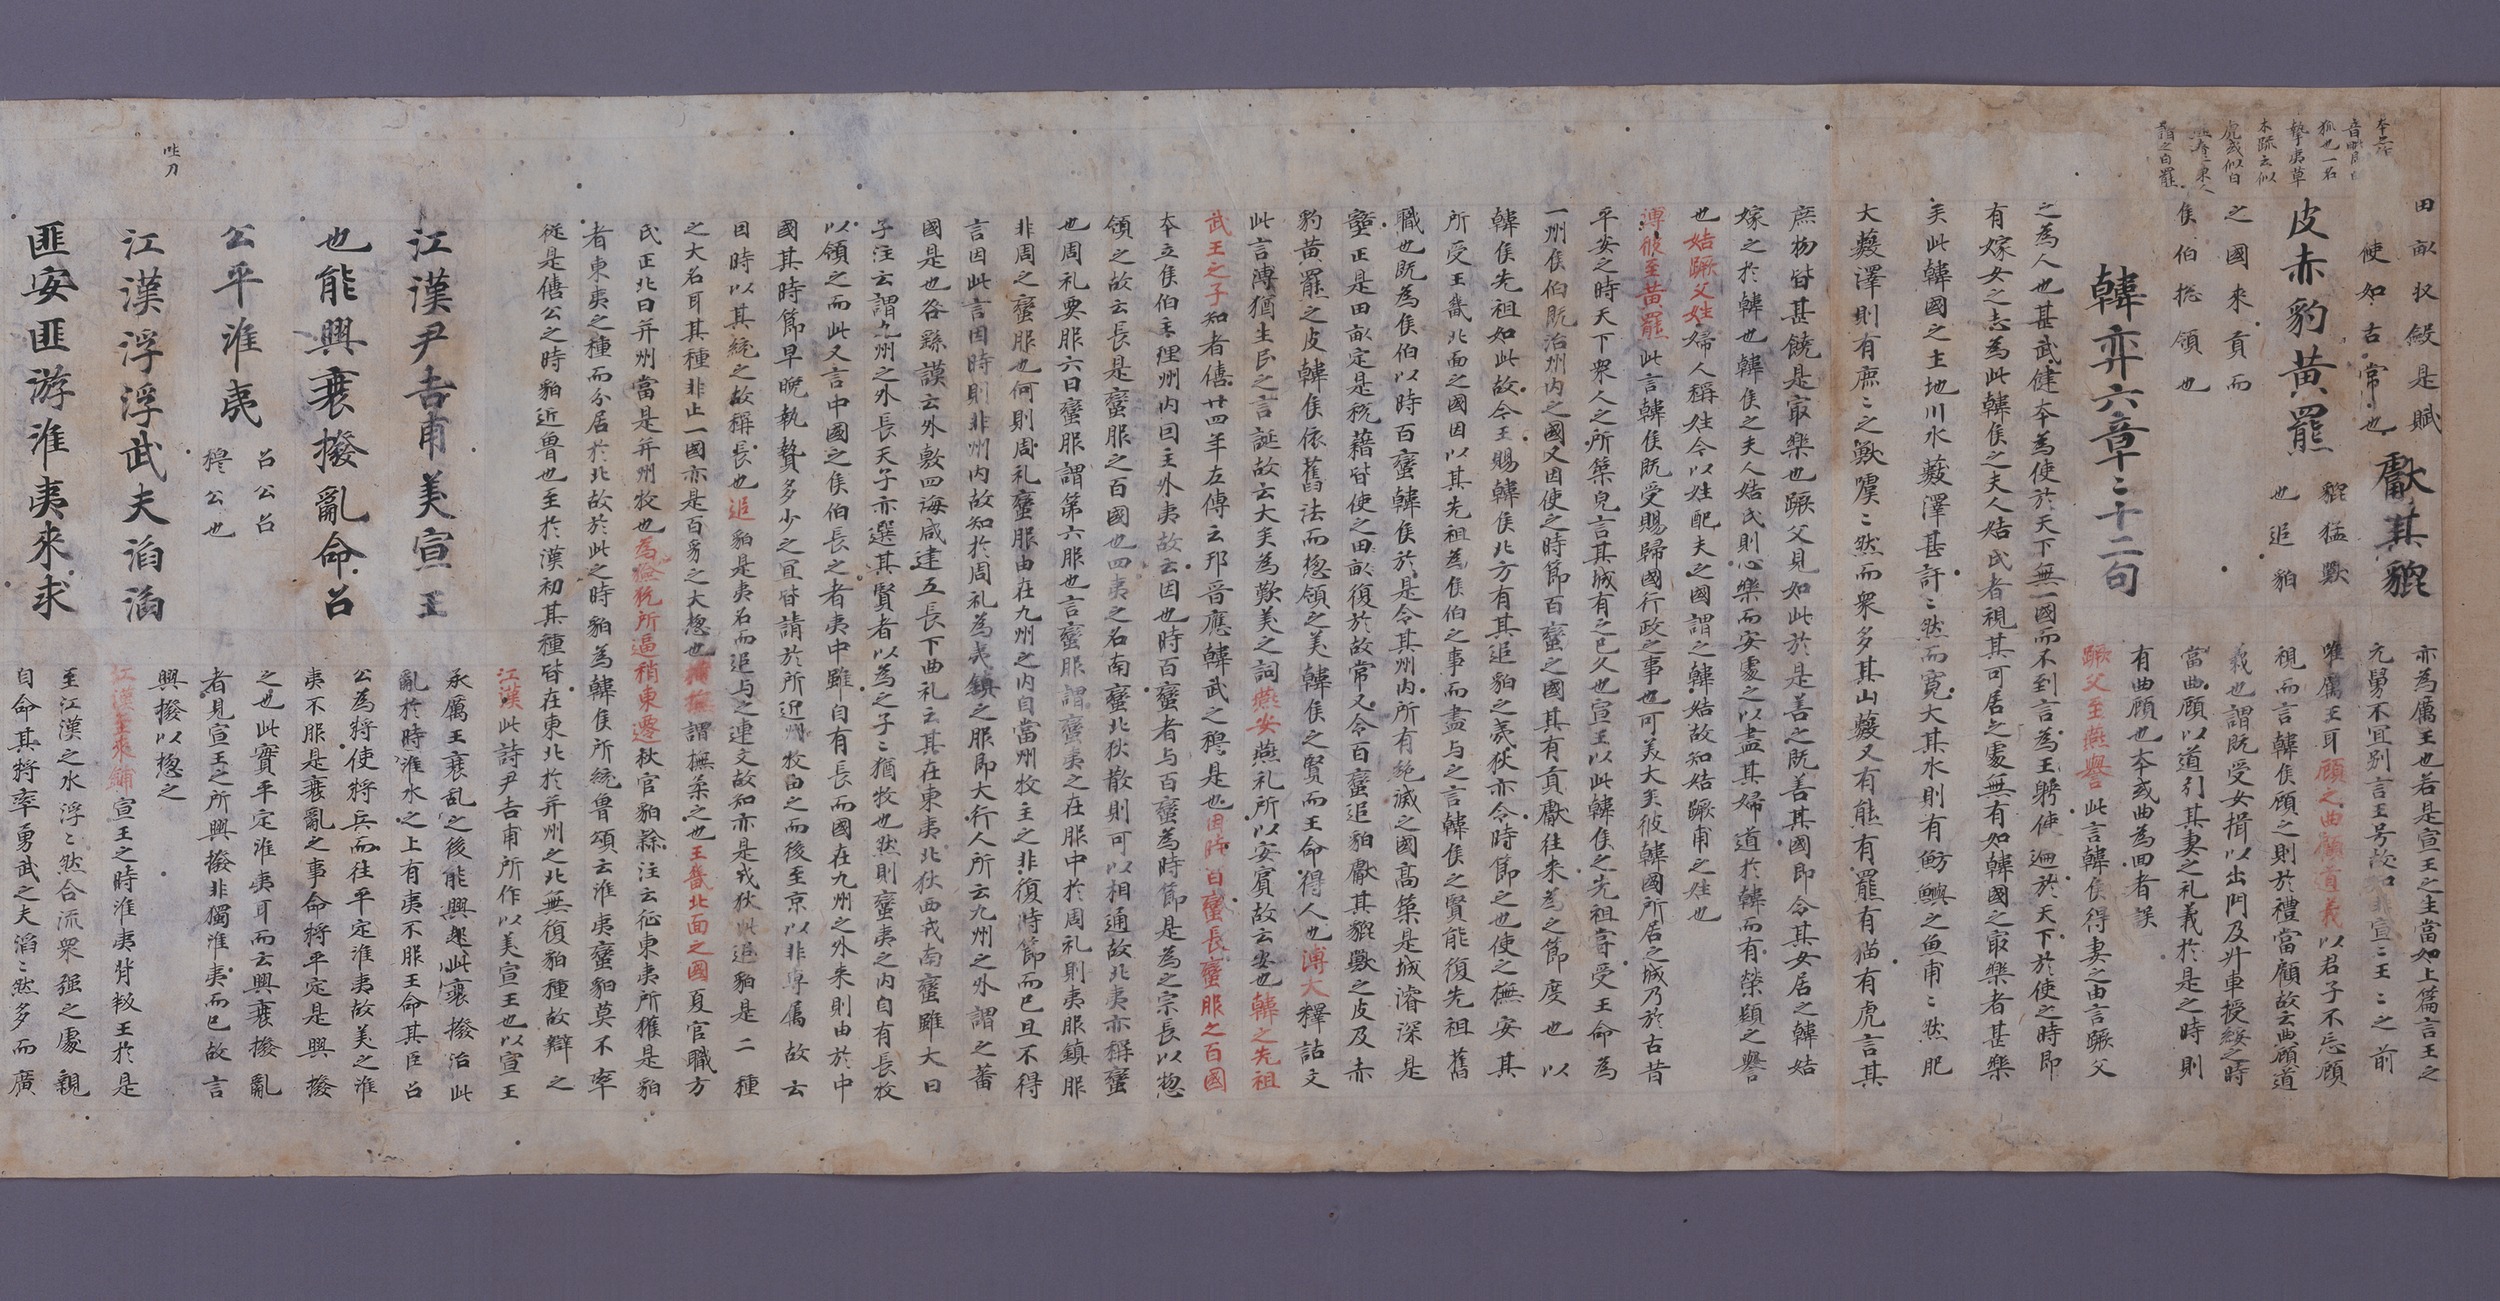 音毗即白
狐也一名
摯夷草
木疏云似
虎或似白
熊遼東人
謂之白羆
田畝収斂是賦
使如古常也
獻其貔
皮赤豹黃羆
貔猛獸
也追貊
之國來貢而
侯伯揔領也
韓弈六章〻十二句
亦為厲王也若是宣王之生當如上篇言王之
元舅不宜別言王号故知非宣〻王〻之前
唯厲王耳顧之曲顧道義以君子不忘顧
視而言韓侯顧之則於禮當顧故云曲顧道
義也謂既受女揖以出門及升車授綏之時
當曲顧以道引其妻之礼義於是之時則
有曲顧也本或曲為回者誤
蹶父至燕譽此言韓侯得妻之由言蹶父
之為人也甚武健本為使於天下無一國而不到言為王躬使遍於天下於使之時即
有嫁女之志為此韓侯之夫人姞氏者視其可居之處無有如韓國之冣樂者甚樂
矣此韓國之土地川水藪澤甚訏〻然而寬大其水則有魴鱮之魚甫〻然肥
大藪澤則有庶〻之獸噳〻然而衆多其山藪又有熊有羆有猫有虎言其
庶物皆甚饒是冣樂也蹶父見如此於是善之既善其國即令其女居之韓姞
嫁之於韓也韓侯之夫人姞氏則心樂而安處之以盡其婦道於韓而有榮顯之譽
也姞蹶父姓婦人稱姓今以姓配夫之國謂之韓姞故知姞蹶甫之姓也
溥彼至黃羆此言韓侯既受賜歸國行政之事也可美大矣彼韓國所居之城乃於古昔
平安之時天下衆人之所築皃言其城有之已久也宣王以此韓侯之先祖甞受王命為
一州侯伯既治州內之國又因使之時節百蠻之國其有貢獻往来為之節度也以
韓侯先祖如此故今王賜韓侯北方有其追貊之夷狄亦令時節之也使之撫安其
所受王畿北面之國因以其先祖為侯伯之事而盡与之言韓侯之賢能復先祖舊
職也既為侯伯以時百蠻韓侯於是令其州內所有絕滅之國高築是城濬深是
壑正是田畝定是稅藉皆使之田畝復於故常又令百蠻追貊獻其貔獸之皮及赤
豹黃羆之皮韓侯依舊法而揔領之美韓侯之賢而王命得人也溥大釋詁文
此言溥猶生民之言誕故云大矣為歎美之詞燕安燕礼所以安賓故云安也韓之先祖
武王之子知者僖廿四年左傳云邘晉應韓武之穆是也因時百蠻長蠻服之百國
本立侯伯主理州內因主外夷故云因也時百蠻者与百蠻為時節是為之宗長以揔
領之故云長是蠻服之百國也四夷之名南蠻北狄散則可以相通故北夷亦稱蠻
也周礼要服六曰蠻服謂第六服也言蠻服謂蠻夷之在服中於周礼則夷服鎮服
非周之蠻服也何則周礼蠻服由在九州之內自當州牧主之非復時節而已且不得
言因此言因時則非州內故知於周礼為夷鎮之服即大行人所云九州之外謂之蕃
國是也咎繇謨云外敷四海咸建五長下曲礼云其在東夷北狄西戎南蠻雖大曰
子注云謂九州之外長天子亦選其賢者以為之子〻猶牧也然則蠻夷之內自有長牧
以領之而此又言中國之侯伯長之者夷中雖自有長而國在九州之外来則由於中
國其時節早晚執贄多少之冝皆請於所近州牧由之而後至京以非専属故云
因時以其統之故稱長也追貊是夷名而追与之連文故知亦是戎狄此追貊是二種
之大名耳其種非止一國亦是百蛮之大揔也撫謂撫柔之也王畿北面之國夏官職方
氏正北曰并州當是并州牧也為玁狁所逼稍東遷秋官貊隷注云征東夷所獲是貊
者東夷之種而分居於北故於此之時貊為韓侯所統魯頌云淮夷蠻貊莫不率
従是僖公之時貊近魯也至於漢初其種皆在東北於并州之北無復貊種故辯之
江漢尹吉甫美宣王
也能興衰撥亂命召
公平淮夷
召公召
穆公也
江漢此詩尹吉甫所作以美宣王也以宣王
承厲王衰乱之後能興起此衰撥治此
亂於時淮水之上有夷不服王命其臣召
公為將使將兵而往平定淮夷故美之淮
夷不服是衰亂之事命將平定是興撥
之也此實平定淮夷耳而云興衰撥亂
者見宣王之所興撥非獨淮夷而已故言
興撥以揔之
江漢浮浮武夫滔滔
匪安匪游淮夷来求
江漢至來鋪宣王之時淮夷背叛王於是
至江漢之水浮〻然合流衆强之處親
自命其將率勇武之夫滔〻然多而廣
吡刀